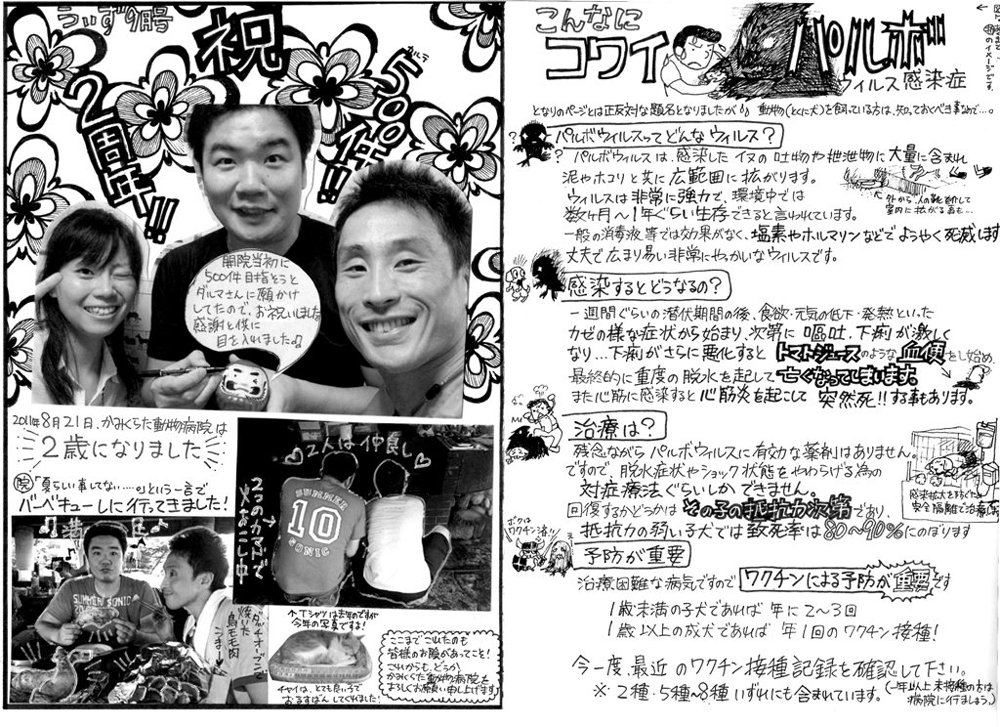 うぃず9月号
祝
2周年!!!
カルテ
500件!!
開院当初に
500件目指そうと
ダルマさんに願かけ
してたので、お祝いしました
感謝と供に
目を入れました♪
2011年8月21日、かみくらた動物病院は
2歳になりました
院「夏らしい事してない……。」という一言で
バーベキューしに行ってきました!
♪満足♪
ダッチオーブンで
焼いた
鳥モモ肉
うまー
♡2人は仲良し♡
2つのカマドで
火おこし中
SUMMER
10
SONIC
SUMMER SONIC
↑Tシャツは去年のですが
今年の写真ですよ!
チャイは、とても良い子で
おるすばんしてくれました!
ここまでこれたのも
皆様のお陰があってこそ!
これからも、どうか
かみくらた動物病院を
よろしくお願い申し上げます!
こんなに
コワイ
パルボ
ウィルス感染症
のイメージです。
となりのページとは正反対な題名となりましたが、動物(とくに犬)を飼っている方は、知っておくべき事なので…。
パルボウィルスってどんなウィルス?
パルボウィルスは、感染したイヌの吐物や排泄物に大量に含まれ
泥やホコリと共に広範囲に拡がります。
ウィルスは非常に強力で、環境中では
数ヶ月～1年ぐらい生存できると言われています。
外から、人の靴を介して
室内に拡がる事も…
一般の消毒液等では効果がなく、塩素やホルマリンなどでようやく死滅します
丈夫で広まり易い非常にやっかいなウィルスです。
感染するとどうなるの?
一週間ぐらいの潜伏期間の後、食欲・元気の低下・発熱といった
カゼの様な症状から始まり、次第に嘔吐、下痢が激しく
なり…下痢がさらに悪化するとトマトジュースのような血便をし始め、
最終的に重度の脱水を起して亡くなってしまいます。
また心筋に感染すると心筋炎を起こして突然死!!する事もあります。
治療は?
残念ながらパルボウィルスに有効な薬剤はありません。
ですので、脱水症状やショック状態をやわらげる為の
対症療法ぐらいしかできません。
回復するかどうかはその子の抵抗力次第であり、
抵抗力の弱い子犬では致死率は80～90%にのぼります
感染拡大を防ぐため
安全隔離で治療
ボクは
ワクチン済!!
予防が重要
治療困難な病気ですのでワクチンによる予防が重要です
1歳未満の子犬であれば 年に2～3回
1歳以上の成犬であれば 年1回のワクチン接種!
今一度、最近のワクチン接種記録を確認して下さい。
※2種・5種～8種いずれにも含まれています。(一年以上未接種の方は
病院に行きましょう。)